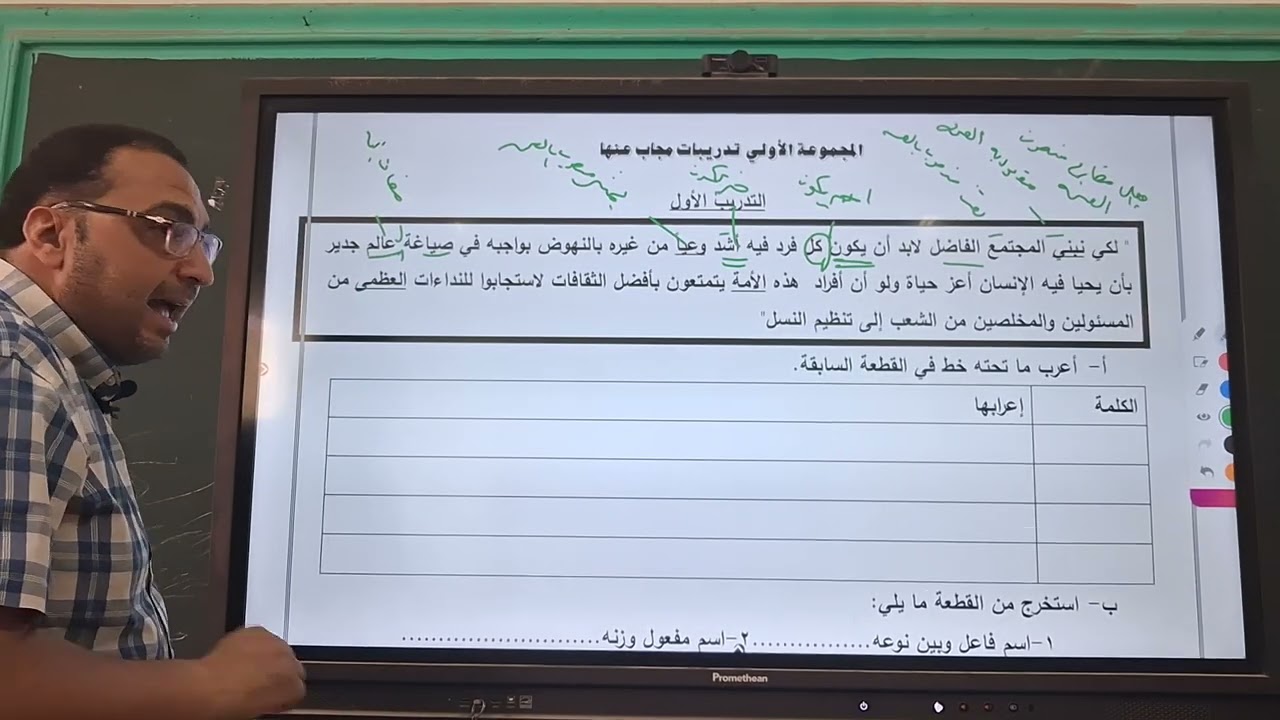 المجموعة الأولي تدريبات مجاب عنها
التدريب الأول
" لكي نبني المجتمع الفاضل لابد أن يكون كل فرد فيه أشد وعيا من غيره بالنهوض بواجبه في صياغة عالم جدير
بأن يحيا فيه الإنسان أعز حياة ولو أن أفراد هذه الأمة يتمتعون بأفضل الثقافات لاستجابوا للنداءات العظمي من
المسئولين والمخلصين من الشعب إلى تنظيم النسل"
أ- أعرب ما تحته خط في القطعة السابقة.
الكلمة إعرابها
ب- استخرج من القطعة ما يلي:
١- اسم فاعل وبين نوعه................. ٢- اسم مفعول وزنه...........................
Promethean